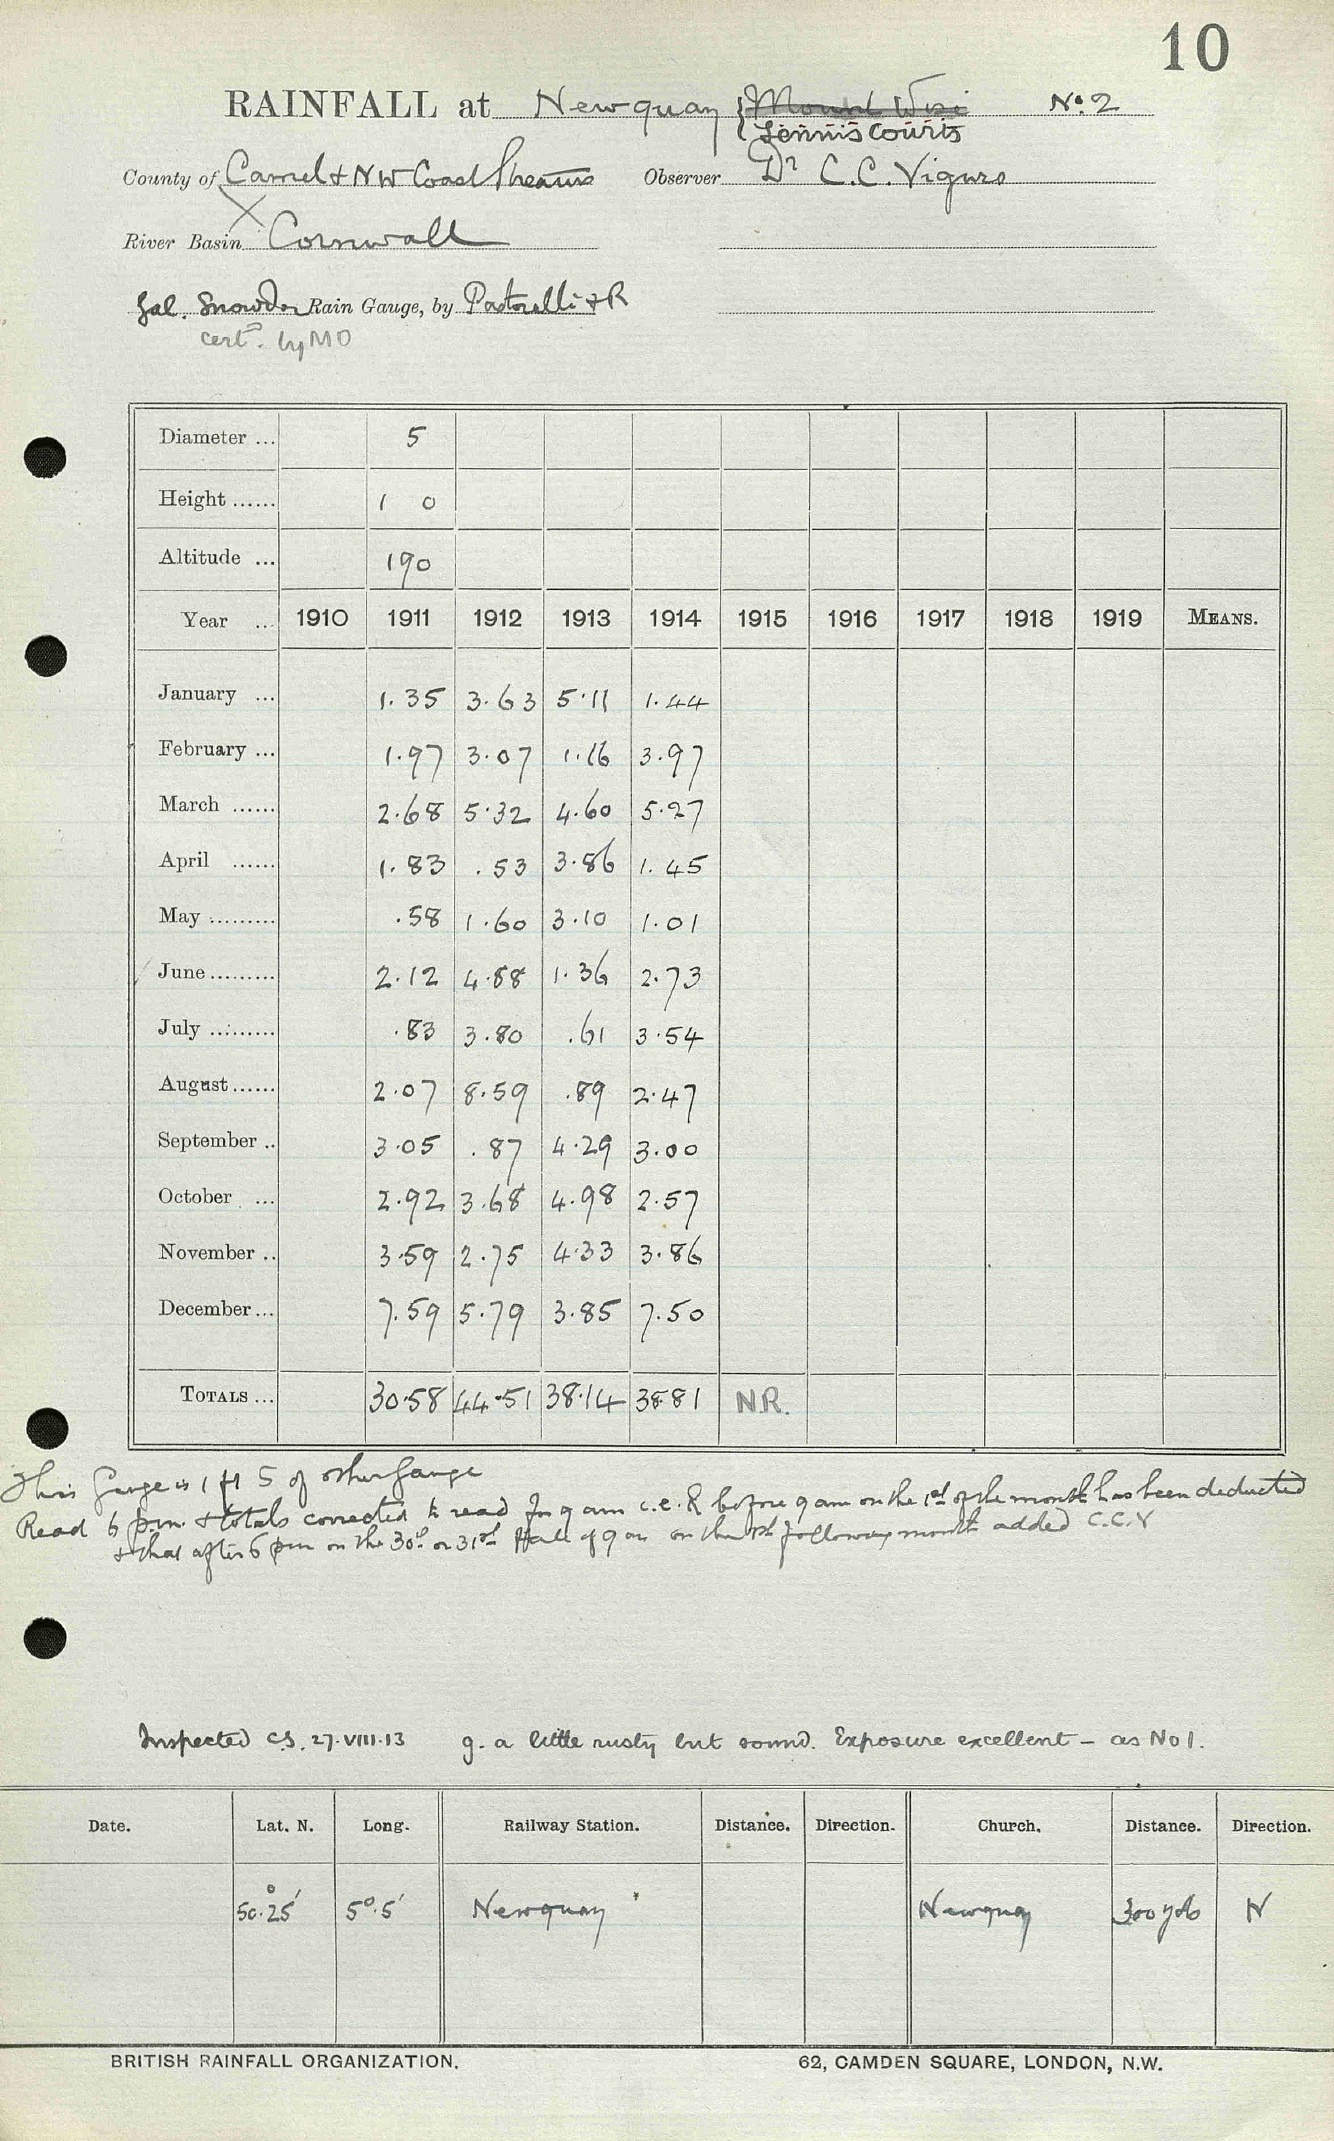 10
RAINFALL at Newquay { Mount Wise No. 2
Tennis Courts
County of Camel & NW Coast Streams Observer Dr C.C. Vigurs
River Basin Cornwall
Gal. Snowdon Rain Gauge, by Pastorelli & R
certd. by MO
Diameter ... 5
Height ...... 1 0
Altitude ... 190
Year ... 1910 1911 1912 1913 1914 1915 1916 1917 1918 1919 MEANS.
January ... 1.35 3.63 5.11 1.44
February ... 1.97 3.07 1.16 3.97
March ...... 2.68 5.32 4.60 5.27
April ...... 1.83 .53 3.86 1.45
May ......... .58 1.60 3.10 1.01
June ......... 2.12 4.88 1.36 2.73
July ......... .83 3.80 .61 3.54
August ...... 2.07 8.59 .89 2.47
September .. 3.05 .87 4.29 3.00
October ... 2.92 3.68 4.98 2.57
November .. 3.59 2.75 4.33 3.86
December ... 7.59 5.79 3.85 7.50
TOTALS ... 30.58 44.51 38.14 38.81 N.R.
This Gauge is 1 ft S of other Gauge
Read 6 p.m. & totals corrected to read for 9 am i.e. R before 9 am on the 1st of the month has been deducted
& that after 6 pm on the 30th or 31st of 9 am on the 1st following month added C.C.V
Inspected C.S. 27.VIII.13 g. a little rusty but sound. Exposure excellent – as No 1.
Date. Lat. N. Long. Railway Station. Distance. Direction. Church. Distance. Direction.
50°.25' 5°.5' Newquay Newquay 300 yds N
BRITISH RAINFALL ORGANIZATION. 62, CAMDEN SQUARE, LONDON, N.W.